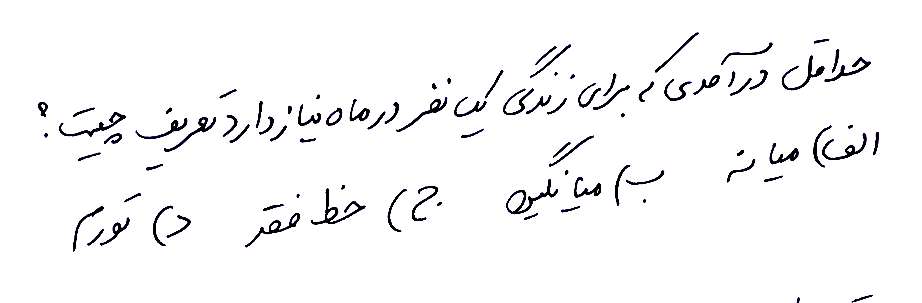 حداقل درآمدی که برای زندگی یک نفر در ماه نیاز دارد تعریف چیست؟
الف) میانه ب) میانگین ج) خط فقر د) تورم